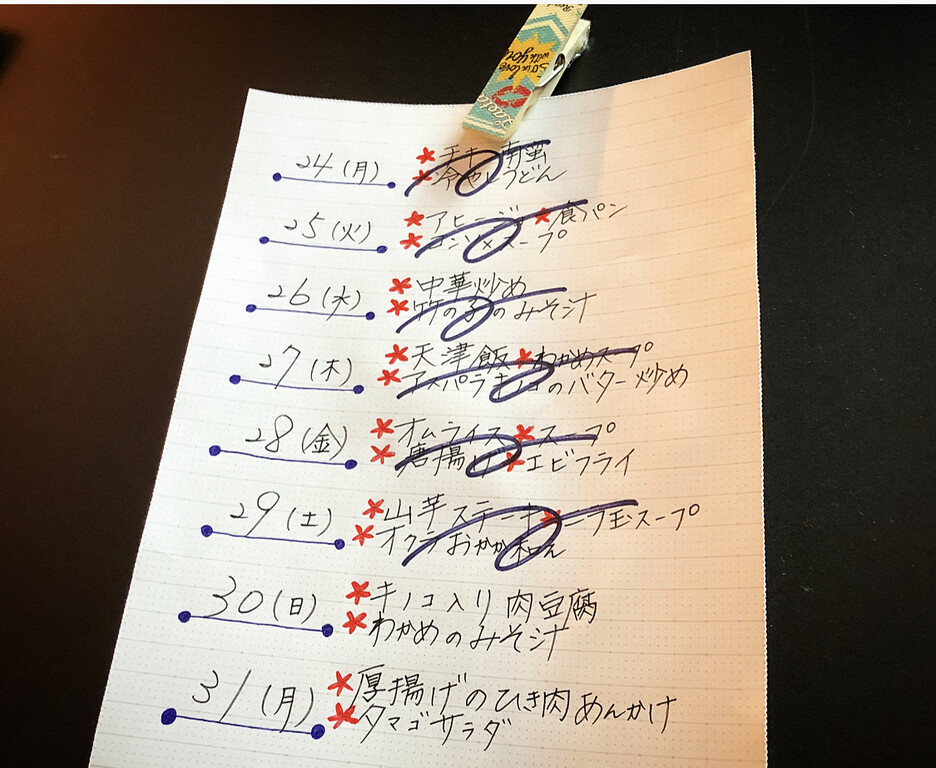 with you
24 (月)
*チキン南蛮
*冷やしうどん
25 (火)
*アヒージョ *食パン
*コンソメスープ
26 (水)
*中華炒め
*竹の子のみそ汁
27 (木)
*天津飯 *わかめスープ
*アスパラキノコのバター炒め
28 (金)
*オムライス *スープ
*唐揚げ *エビフライ
29 (土)
*山芋ステーキ *ニラ玉スープ
*オクラおかか和え
30 (日)
*キノコ入り肉豆腐
*わかめのみそ汁
31 (月)
*厚揚げのひき肉あんかけ
*タマゴサラダ